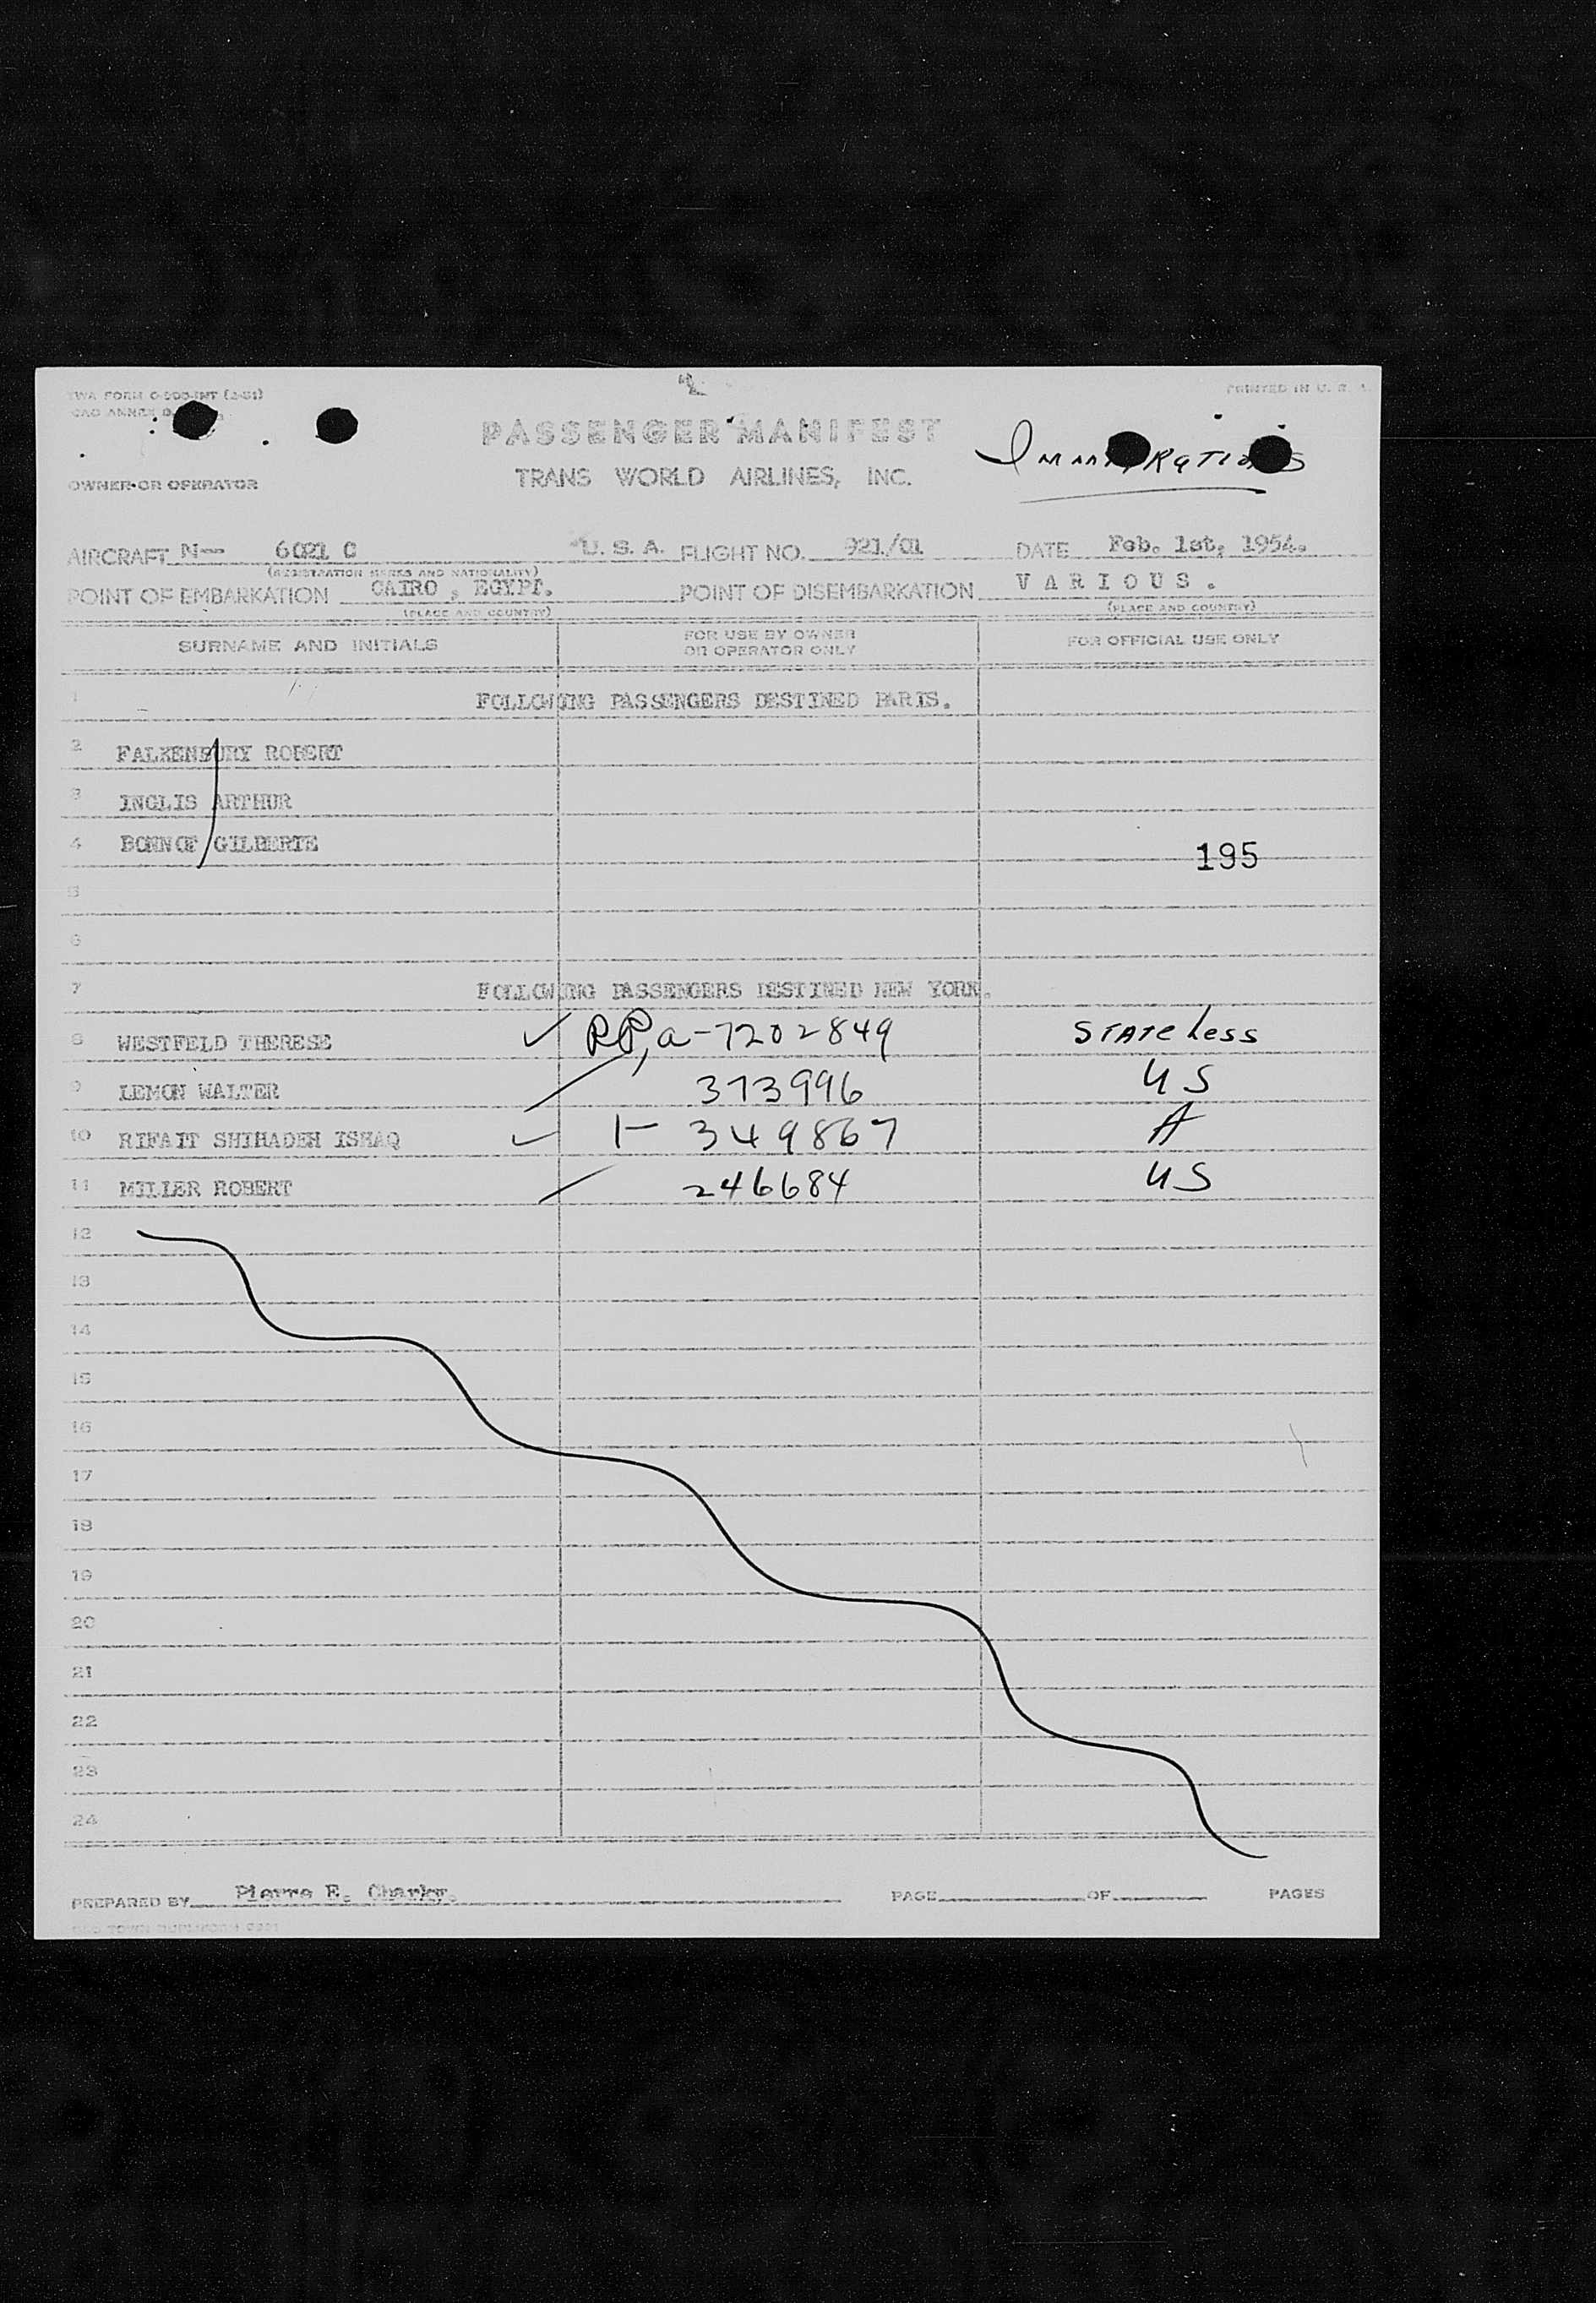 TWA FORM O-500-INT (2-51)
PRINTED IN U. S. A.
PASSENGER MANIFEST
TRANS WORLD AIRLINES, INC.
OWNER OR OPERATOR
AIRCRAFT N-- 6021 C U. S. A. FLIGHT NO. 921/01 DATE Feb. 1st, 1954.
(REGISTRATION MARKS AND NATIONALITY)
POINT OF EMBARKATION CAIRO , EGYPT. POINT OF DISEMBARKATION V A R I O U S .
(PLACE AND COUNTRY) (PLACE AND COUNTRY)
SURNAME AND INITIALS FOR USE BY OWNER OR OPERATOR ONLY FOR OFFICIAL USE ONLY
1 FOLLOWING PASSENGERS DESTINED PARIS.
2 FALKENBURY ROBERT
3 INGLIS ARTHUR
4 BONNOF GILBERTE 195
5
6
7 FOLLOWING PASSENGERS DESTINED NEW YORK.
8 WESTFELD THERESE RP, a-7202849 STATeless
9 LEMON WALTER 373996 US
10 RIFAIT SHIHADEH ISHAQ 1- 349867 A
11 MILLER ROBERT 246684 US
12
13
14
15
16
17
18
19
20
21
22
23
24
PREPARED BY Pierre E. Charky. PAGE OF PAGES